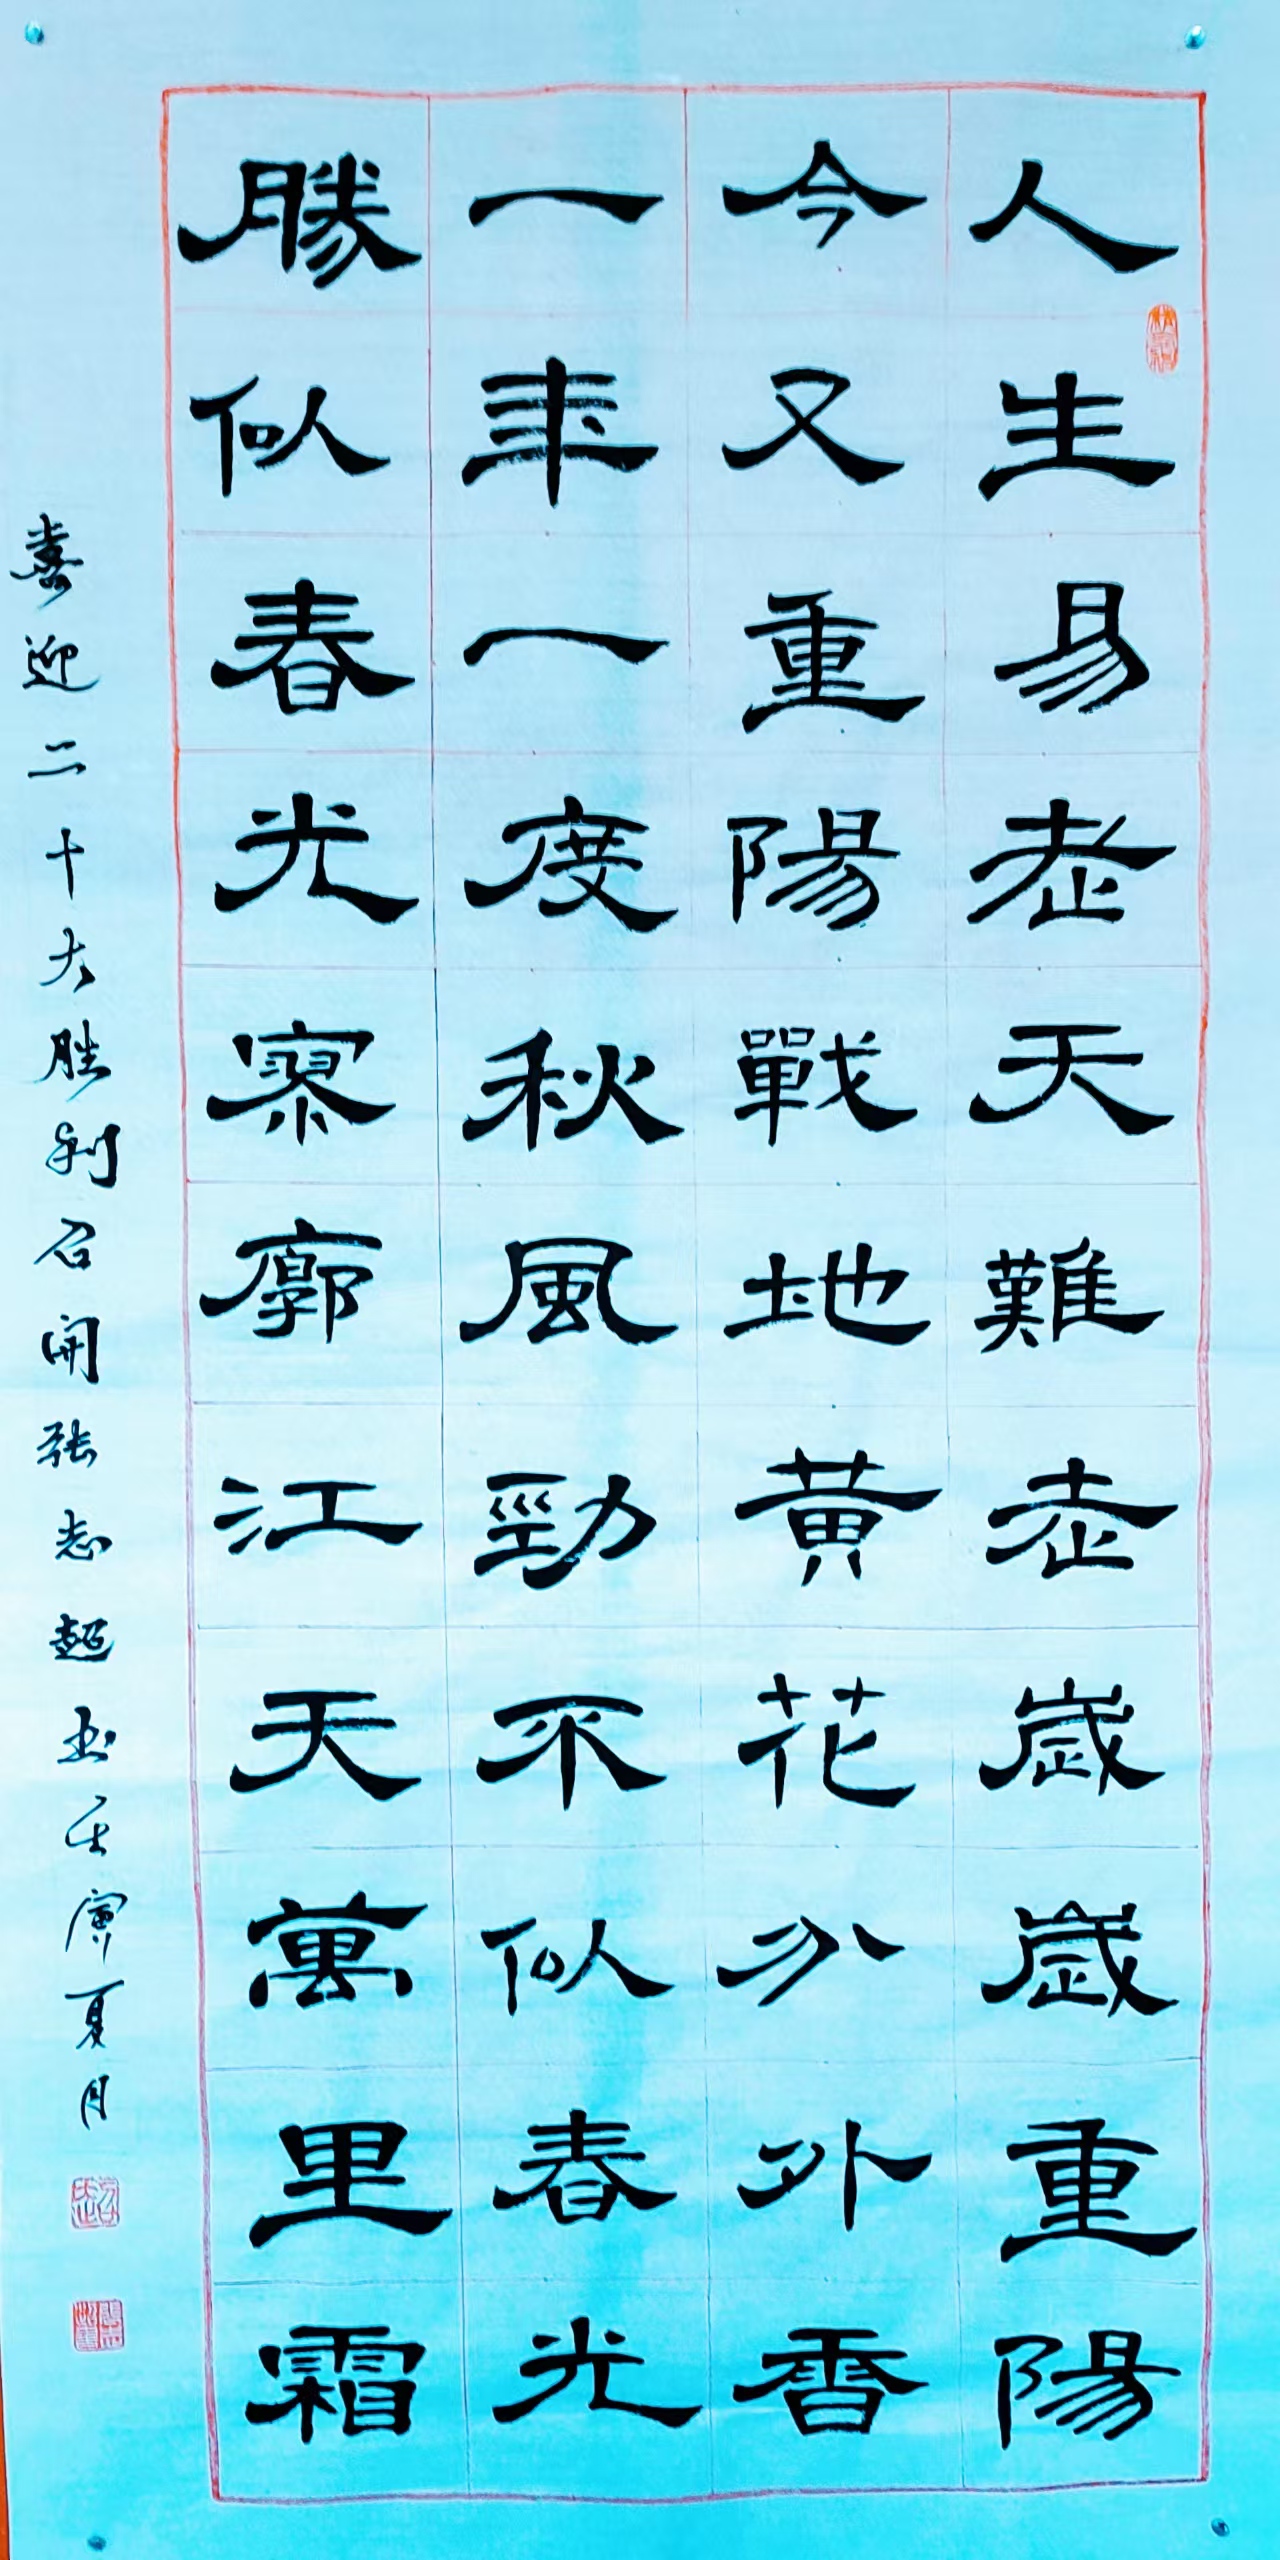 人生易老天難老歲歲重陽
今又重陽戰地黃花分外香
一年一度秋風勁不似春光
勝似春光寥廓江天萬里霜
喜迎二十大胜利召開张志超书壬寅夏月